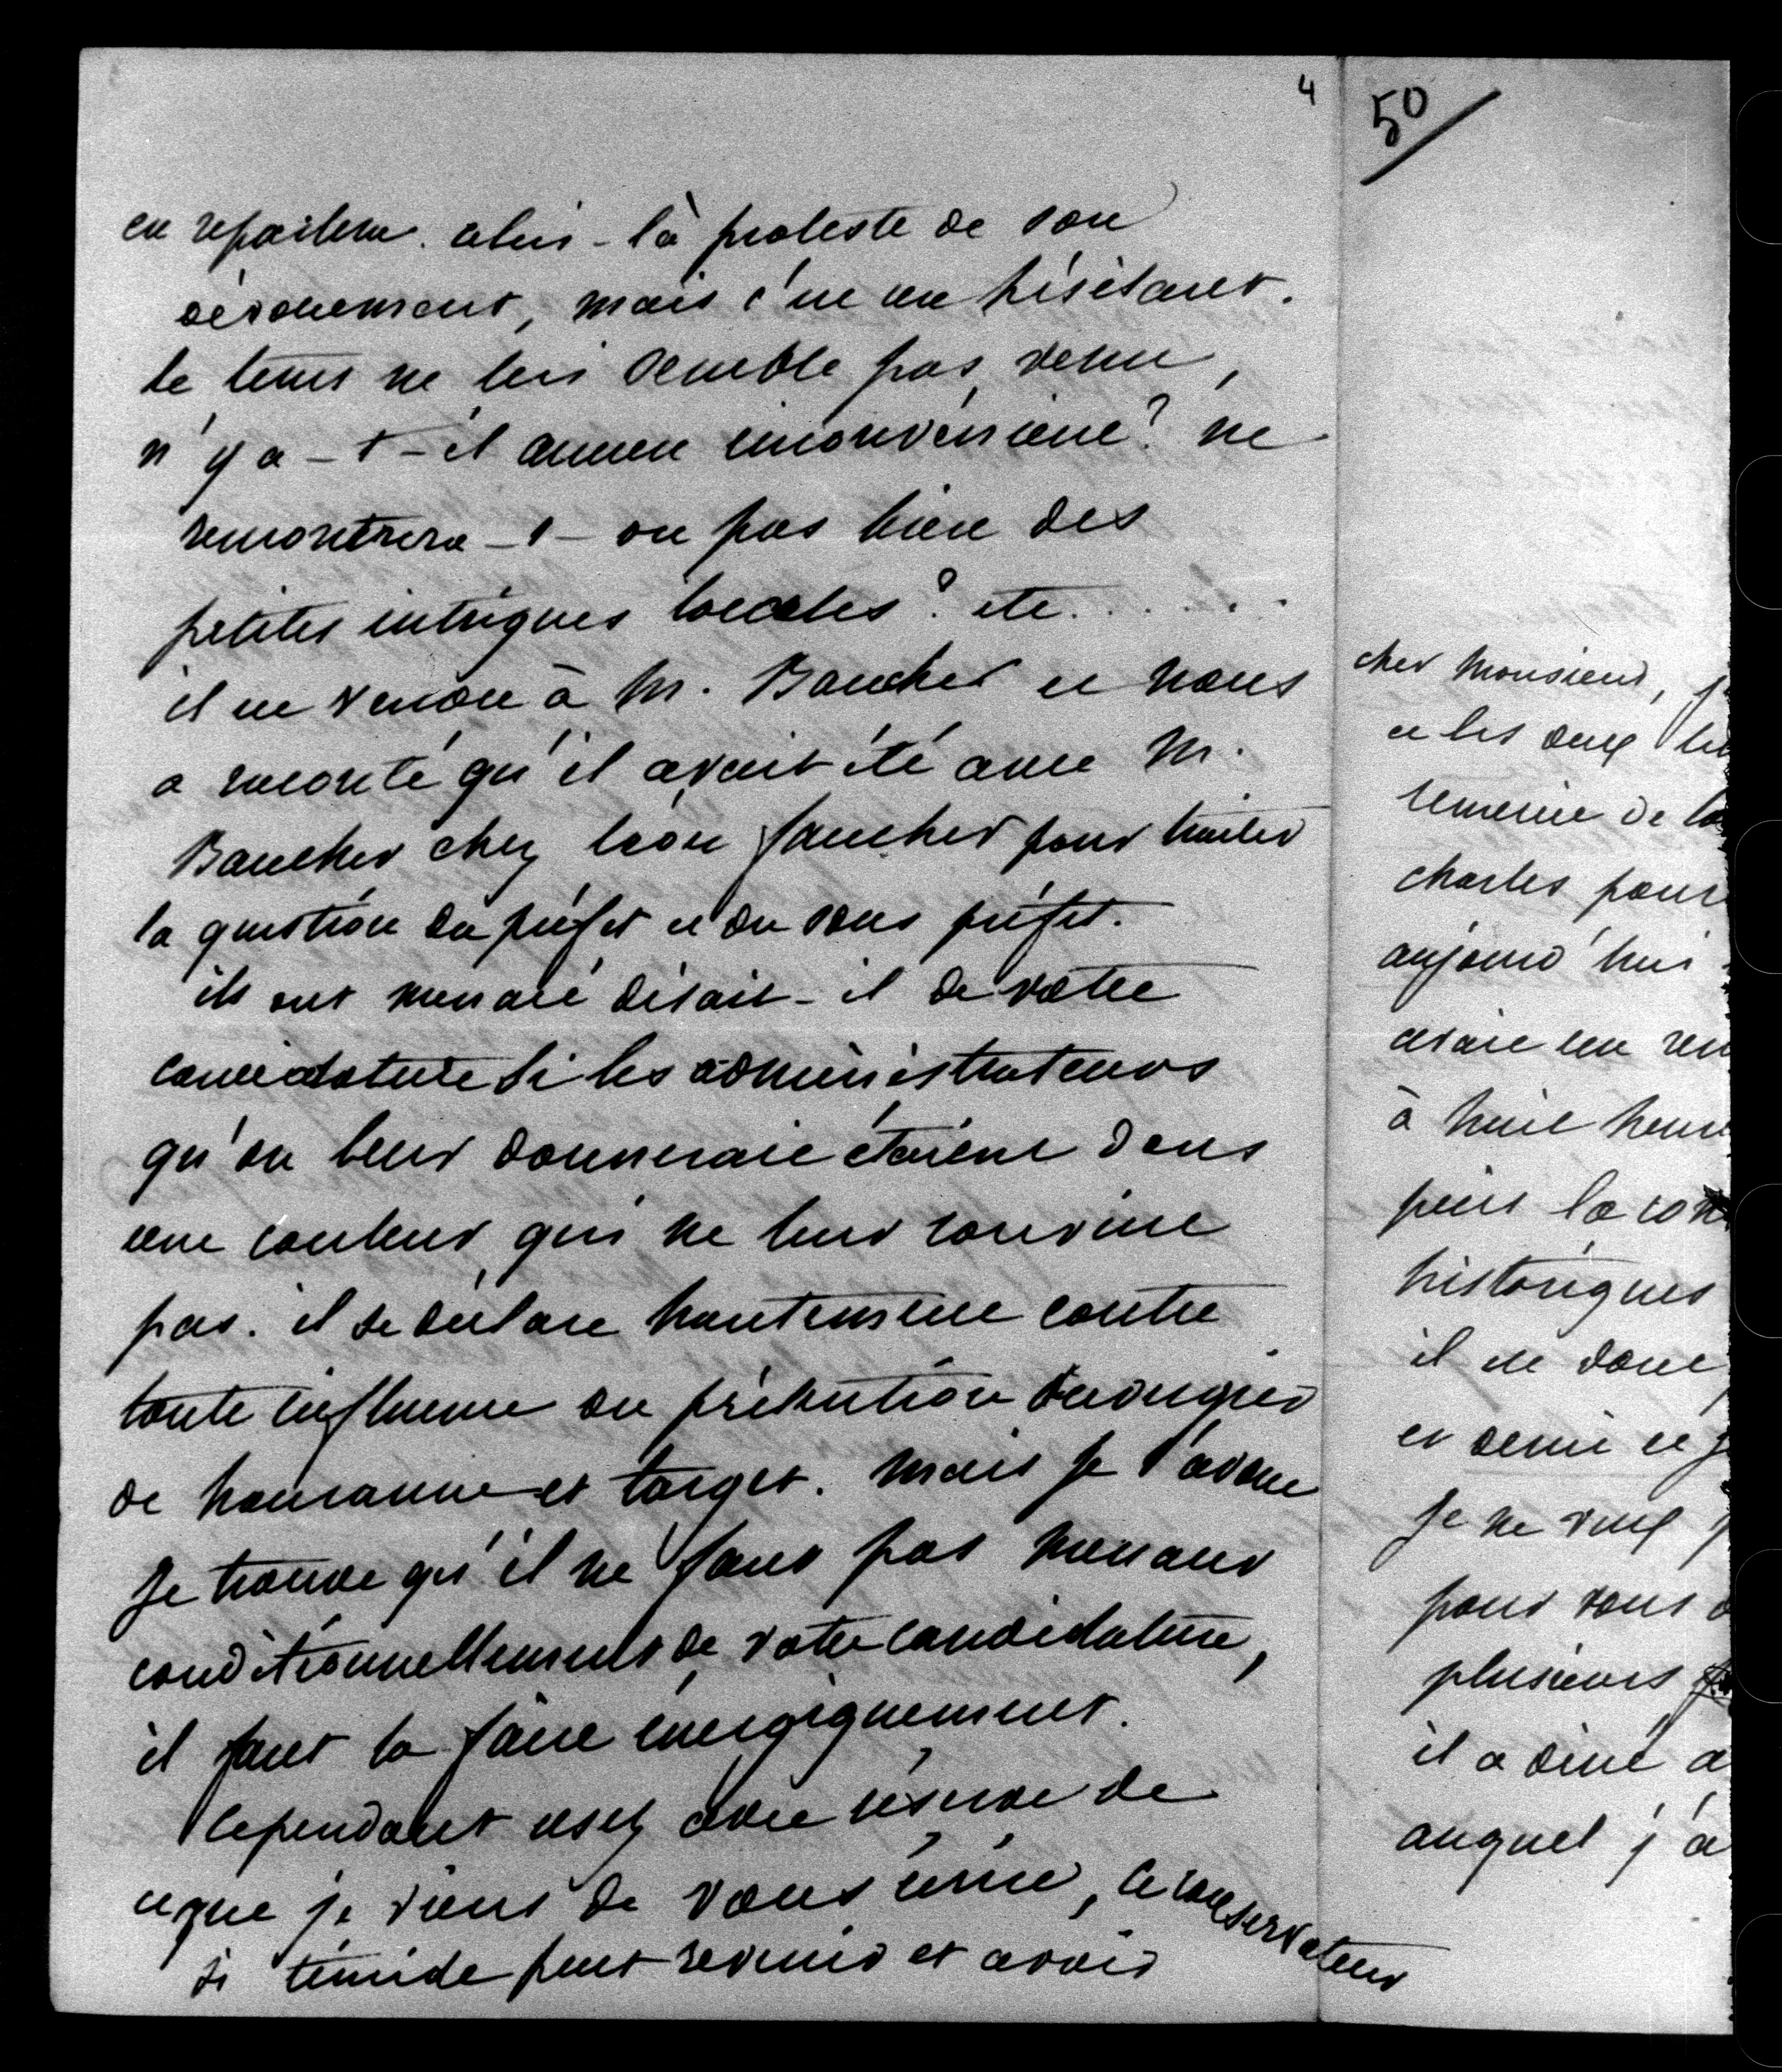 4
en reparlera. celui-là proteste de son
dévouement, mais c'est en hésitant.
le tems ne lui semble pas venu,
n'y a-t-il aucun inconvénient? ne
rencontrera-t-on pas bien des
petites intrigues locales? etc. . . . . .
il en vendu à M. Baucher et nous
a raconté qu'il avait été avec M.
Baucher chez Léon faucher pour traiter
la question du préfet et du sous préfet.
ils ont menacé disait-il de votre
candidature si les administrateurs
qu'on leur donnerait étaient dans
une couleur qui ne leur convint
pas. il se déclare hautement contre
toute influence ou prétention
de et target. mais je l'avoue
je trouve qu'il ne faut pas menacer
conditionnellement de votre candidature,
il faut la faire énergiquement.
Cependant usez avec réserve de
ce que je viens de vous écrire, ce conservateur
si timide peut revenir et avoir
50
cher Monsieur, j
et les deux
remercie de la
charles pour
aujourd'hui
avait un ren
à huit heure
puis la com
historiques
il est donc
et demie et j
je ne veux p
pour vous
plusieurs
il a diné a
auquel j'a